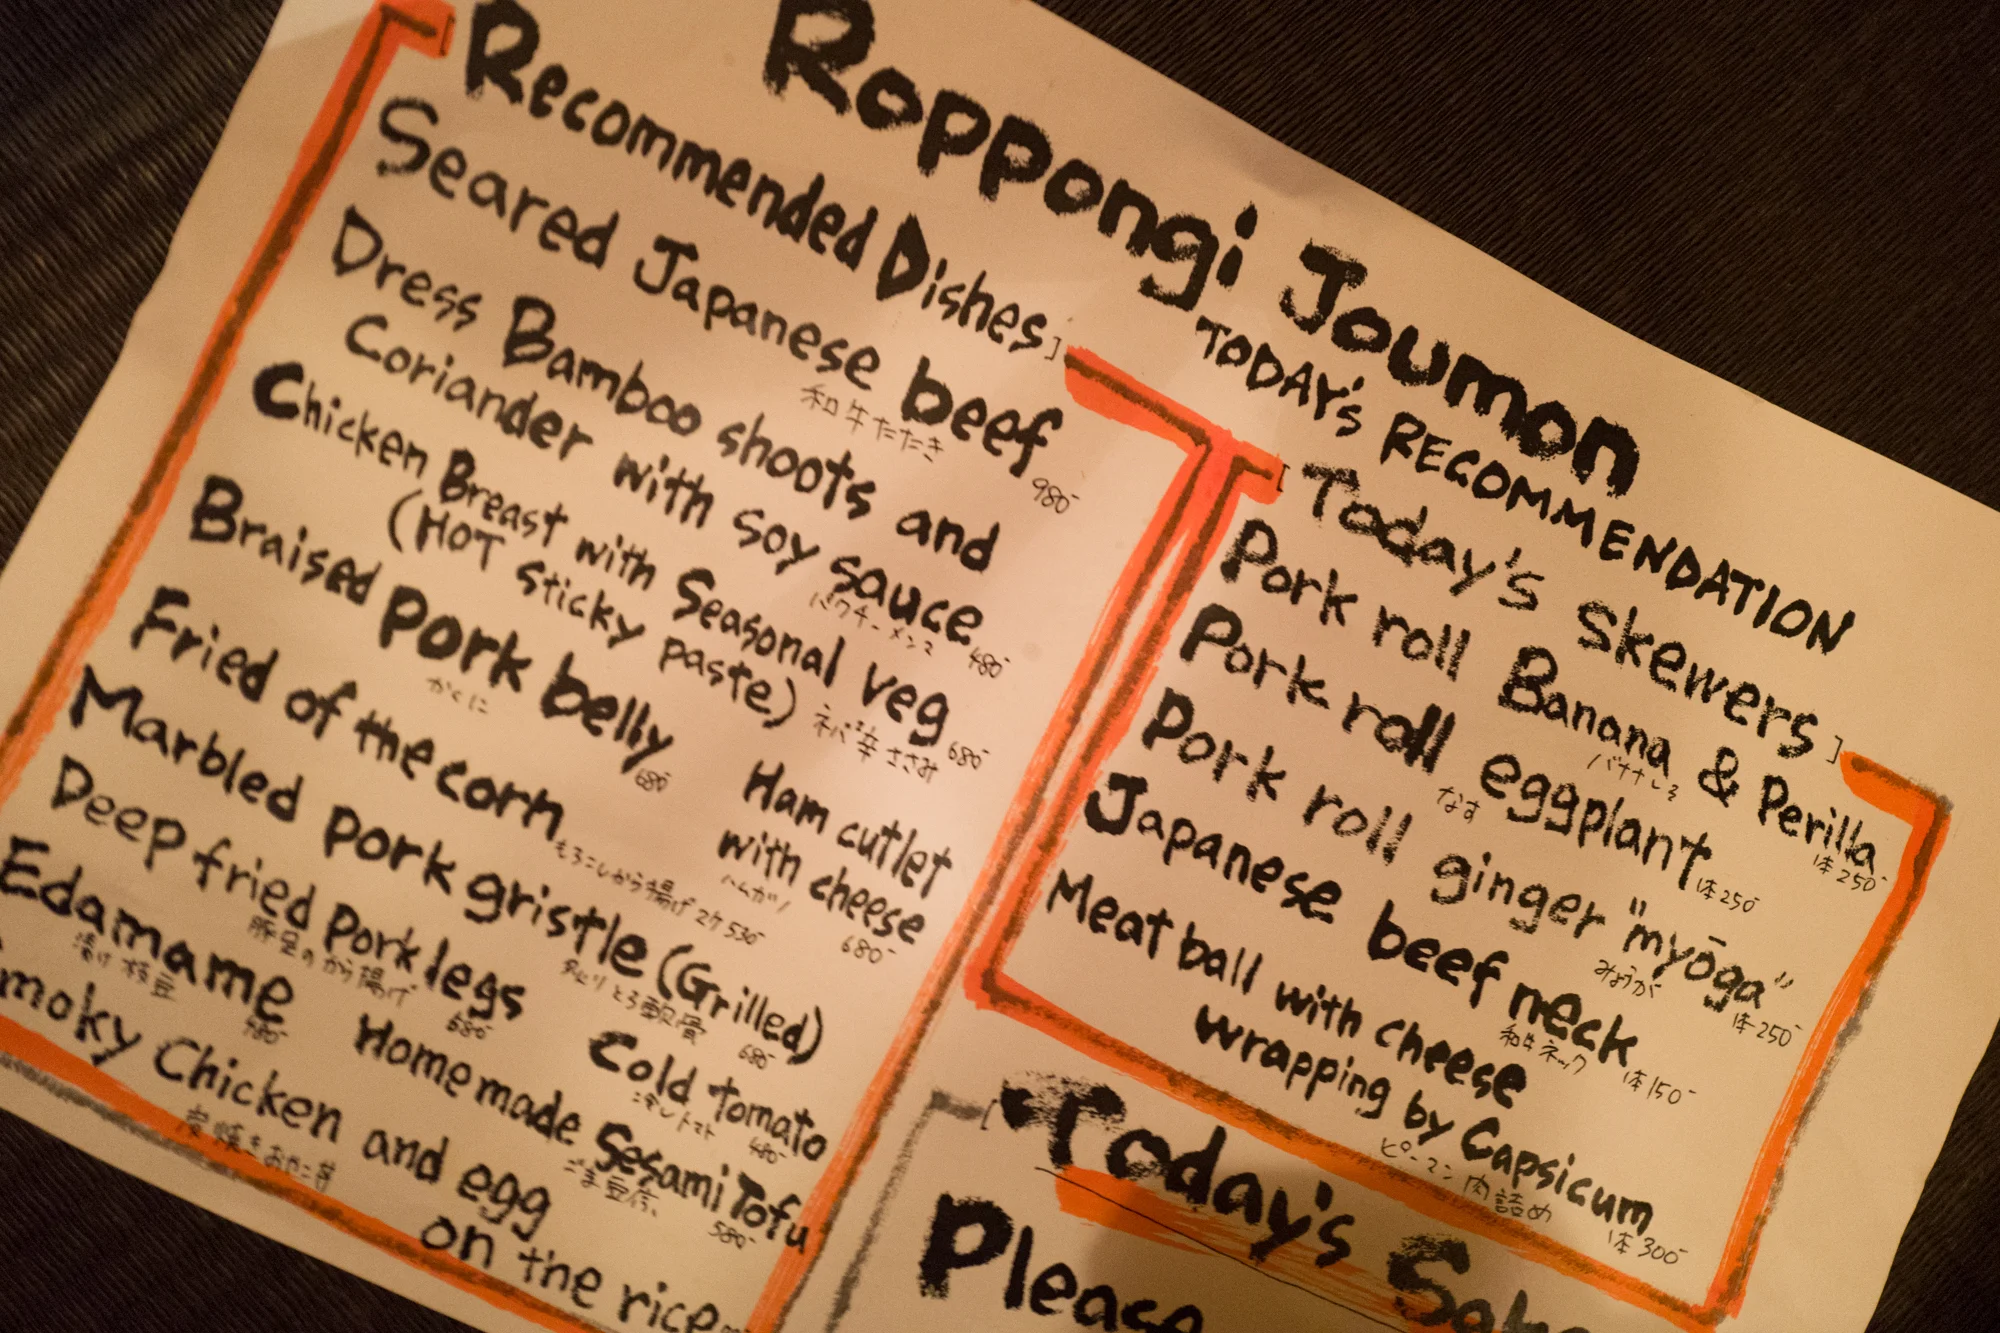 Roppongi Joumon
TODAY'S RECOMMENDATION
[Recommended Dishes]
Seared Japanese beef
和牛たたき 980-
Dress Bamboo shoots and
Coriander with soy sauce
パクチーメンマ 480-
Chicken Breast with Seasonal veg
(HOT sticky paste)
ネバ辛ささみ 680-
Braised Pork belly
かくに 680-
Ham cutlet
with cheese
ハムカツ 680-
Fried of the corn
もろこしから揚げ 2ケ 530-
Marbled Pork gristle (Grilled)
とろ軟骨 680-
Deep fried Pork legs
豚足のから揚げ 680-
Cold Tomato
冷しトマト 480-
Edamame
漬け枝豆
Homemade Sesami Tofu
ごま豆腐 580-
moky Chicken and egg
on the rice
炭焼きおやこ丼
[Today's Skewers]
Pork roll Banana & Perilla
バナナしそ 1本250-
Pork roll eggplant
なす 1本250-
Pork roll ginger "myōga"
みょうが 1本250-
Japanese beef neck
和牛ネック 1本150-
Meat ball with cheese
wrapping by Capsicum
ピーマン肉詰め 1本300-
[Today's
Please